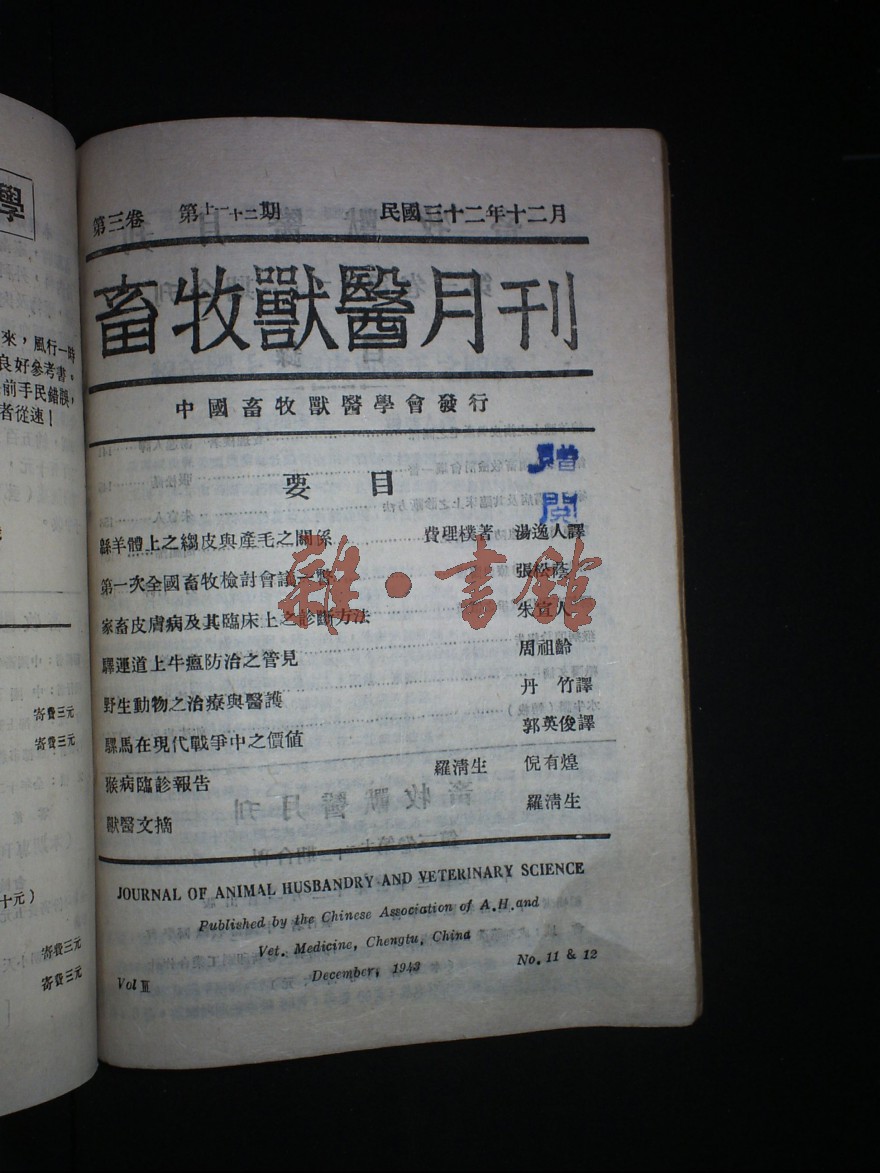 學
來，風行一時
良好參考書。
前手民錯誤，
者從速！
寄費三元
寄費三元
十元）
寄費三元
寄費三元
第三卷 第十一十二期 民國三十二年十二月
畜牧獸醫月刊
中國畜牧獸醫學會發行
贈閱
要目
緜羊體上之縐皮與產毛之關係 費理樸著 湯逸人譯
第一次全國畜牧檢討會議一瞥 張松蔭
家畜皮膚病及其臨床上之診斷方法 朱宣人
驛運道上牛瘟防治之管見 周祖齡
野生動物之治療與醫護 丹竹譯
騾馬在現代戰爭中之價値 郭英俊譯
猴病臨診報告 羅淸生 倪有煌
獸醫文摘 羅淸生
雜·書館
JOURNAL OF ANIMAL HUSBANDRY AND VETERINARY SCIENCE
Published by the Chinese Association of A.H. and
Vet. Medicine, Chengtu, China
Vol III December, 1943 No. 11 & 12